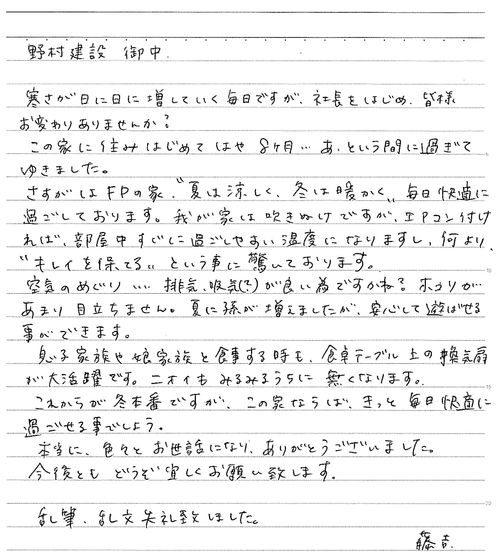 野村建設 御中.
寒さが日に日に増していく毎日ですが、社長をはじめ、皆様
お変わりありませんか?
この家に住みはじめてはや8ヶ月… あ、という間に過ぎて
ゆきました。
さすがはFPの家、"夏は涼しく、冬は暖かく" 毎日快適に
過ごしております。我が家は吹きぬけですが、エアコン付け
れば、部屋中すぐに過ごしやすい温度になりますし、何より、
"キレイを保てる" という事に驚いております。
空気のめぐり… 排気、吸気(?)が良い為ですかね? ホコリが
あまり目立ちません。夏に孫が増えましたが、安心して遊ばせる
事ができます。
息子家族や娘家族と食事する時も、食卓テーブル上の換気扇
が大活躍です。ニオイもみるみるうちに無くなります。
これからが冬本番ですが、この家ならば、きっと毎日快適に
過ごせる事でしょう。
本当に、色々とお世話になり、ありがとうございました。
今後ともどうぞ宜しくお願い致します。
乱筆、乱文失礼致しました。
藤吉.